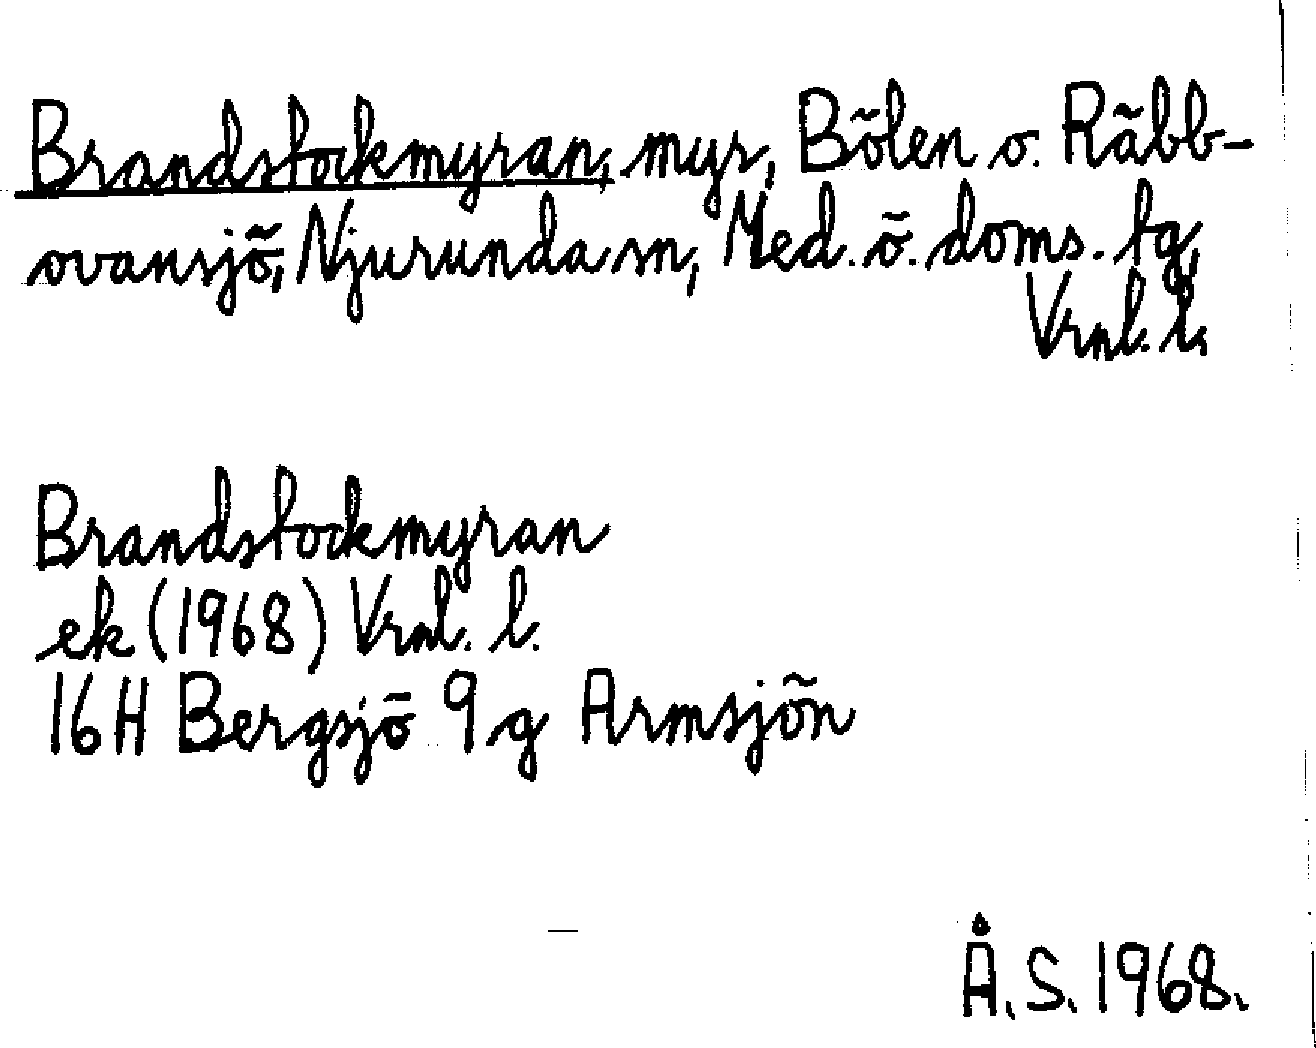 Brandstockmyran, myr, Bölen o. Räbb-
ovansjö, Njurunda sn, Med. ö. doms. tg,
Vrnl. l.
Brandstockmyran
ek (1968) Vrnl. l.
16H Bergsjö 9g Armsjön
Å. S. 1968.